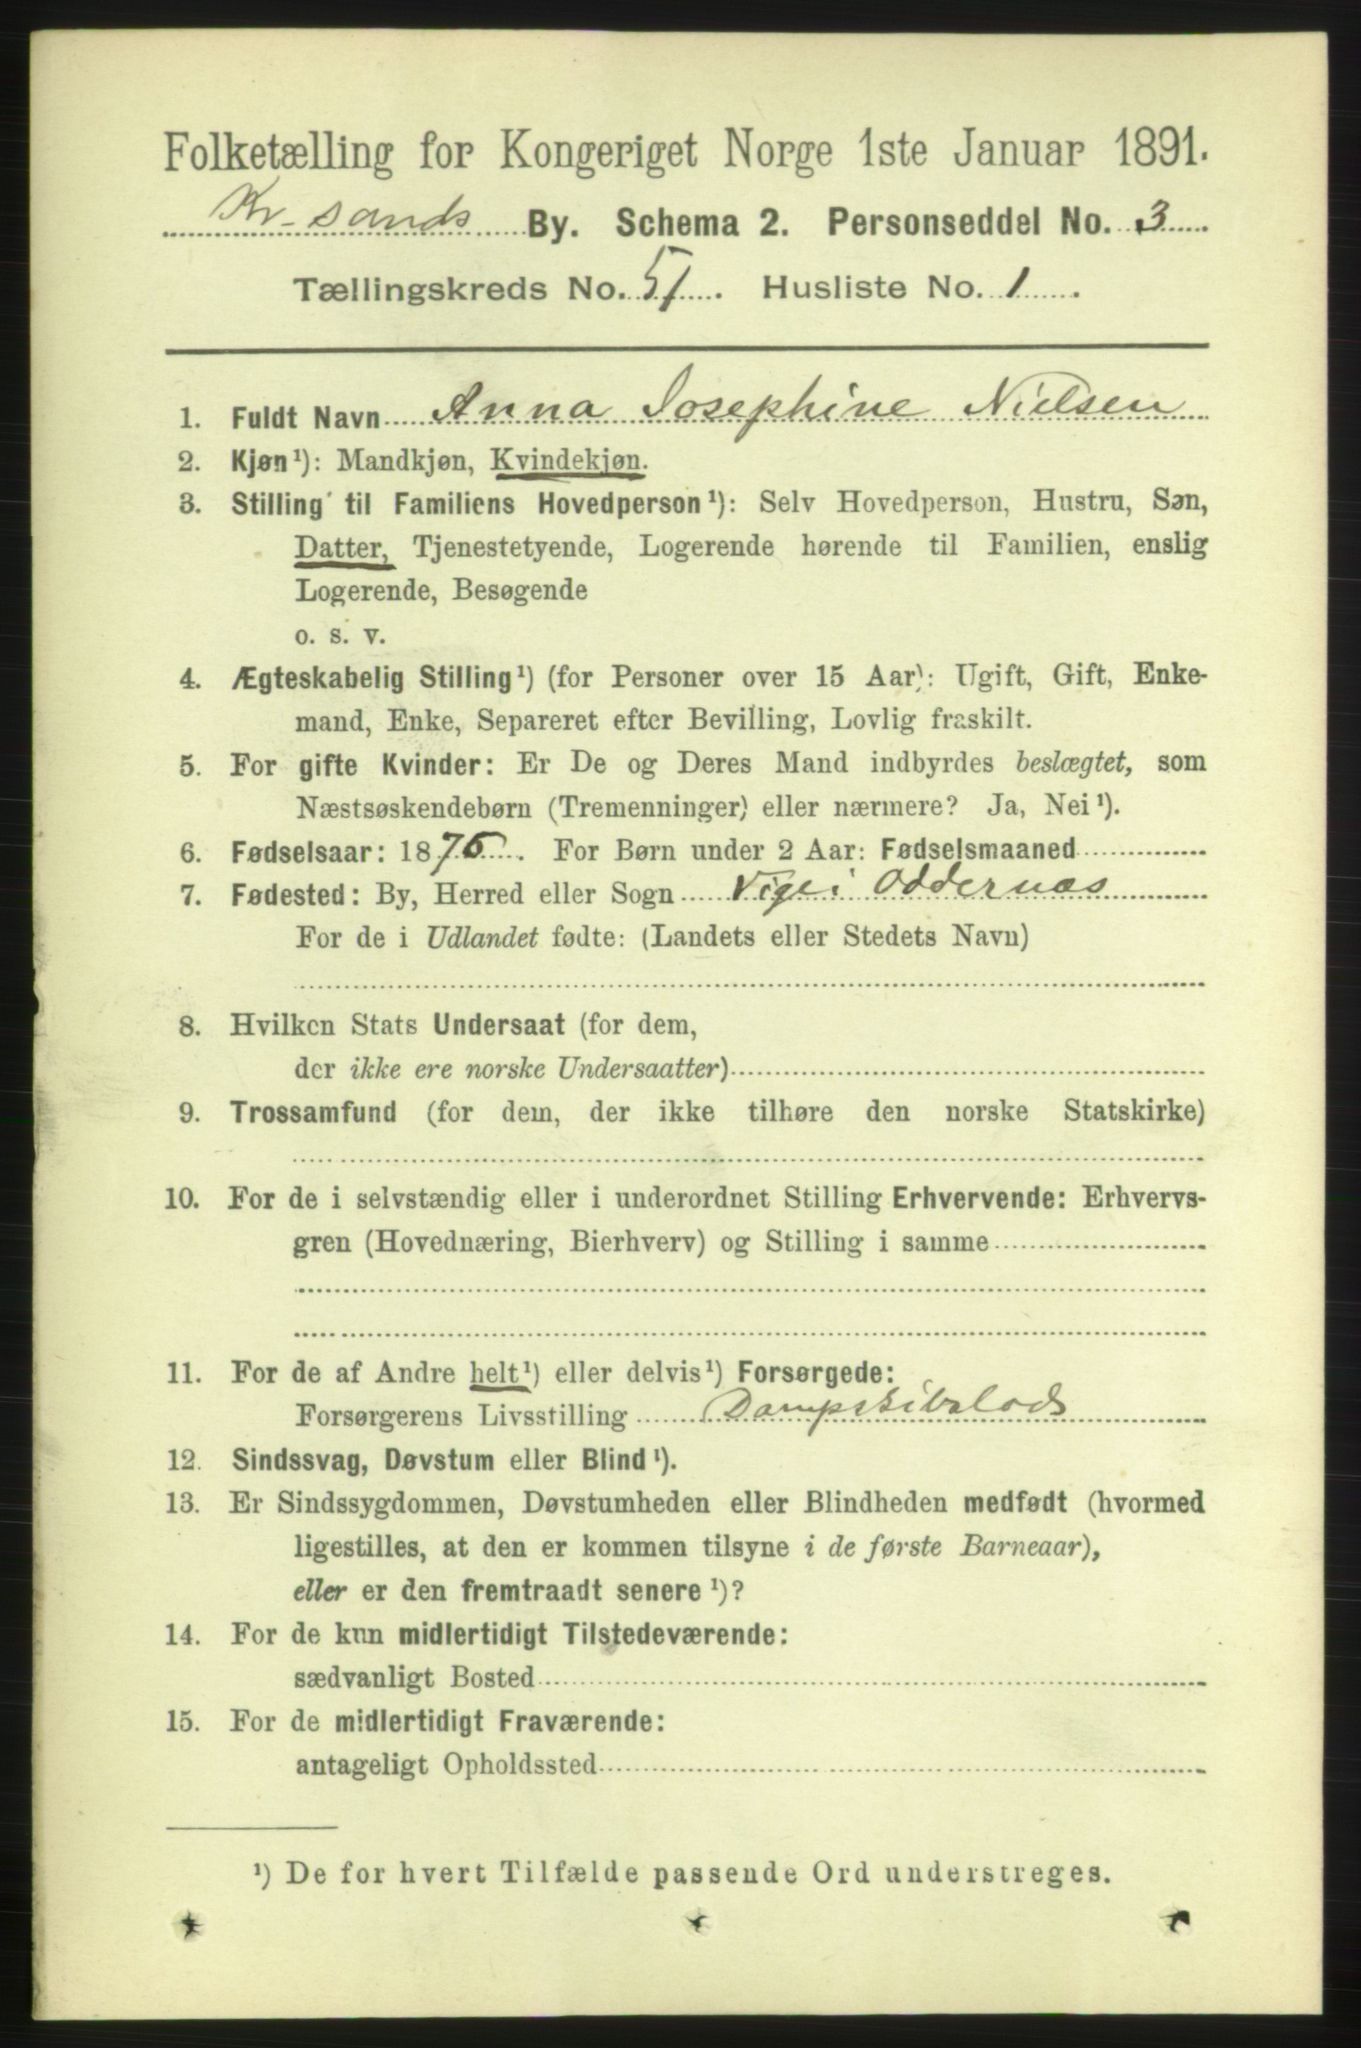 Folketælling for Kongeriget Norge 1ste Januar 1891.
Kr-sands By. Schema 2. Personseddel No. 3
Tællingskreds No. 51. Husliste No. 1.
1. Fuldt Navn Anna Josephine Nielsen
2. Kjøn¹): Mandkjøn, Kvindekjøn.
3. Stilling til Familiens Hovedperson¹): Selv Hovedperson, Hustru, Søn,
Datter, Tjenestetyende, Logerende hørende til Familien, enslig
Logerende, Besøgende
o. s. v.
4. Ægteskabelig Stilling¹) (for Personer over 15 Aar): Ugift, Gift, Enke-
mand, Enke, Separeret efter Bevilling, Lovlig fraskilt.
5. For gifte Kvinder: Er De og Deres Mand indbyrdes beslægtet, som
Næstsøskendebørn (Tremenninger) eller nærmere? Ja, Nei¹).
6. Fødselsaar: 1876. For Børn under 2 Aar: Fødselsmaaned
7. Fødested: By, Herred eller Sogn Vige i Oddernæs
For de i Udlandet fødte: (Landets eller Stedets Navn)
8. Hvilken Stats Undersaat (for dem,
der ikke ere norske Undersaatter)
9. Trossamfund (for dem, der ikke tilhøre den norske Statskirke)
10. For de i selvstændig eller i underordnet Stilling Erhvervende: Erhvervs-
gren (Hovednæring, Bierhverv) og Stilling i samme
11. For de af Andre helt¹) eller delvis¹) Forsørgede:
Forsørgerens Livsstilling Dampskibslods
12. Sindssvag, Døvstum eller Blind¹).
13. Er Sindssygdommen, Døvstumheden eller Blindheden medfødt (hvormed
ligestilles, at den er kommen tilsyne i de første Barneaar),
eller er den fremtraadt senere¹)?
14. For de kun midlertidigt Tilstedeværende:
sædvanligt Bosted
15. For de midlertidigt Fraværende:
antageligt Opholdssted
¹) De for hvert Tilfælde passende Ord understreges.